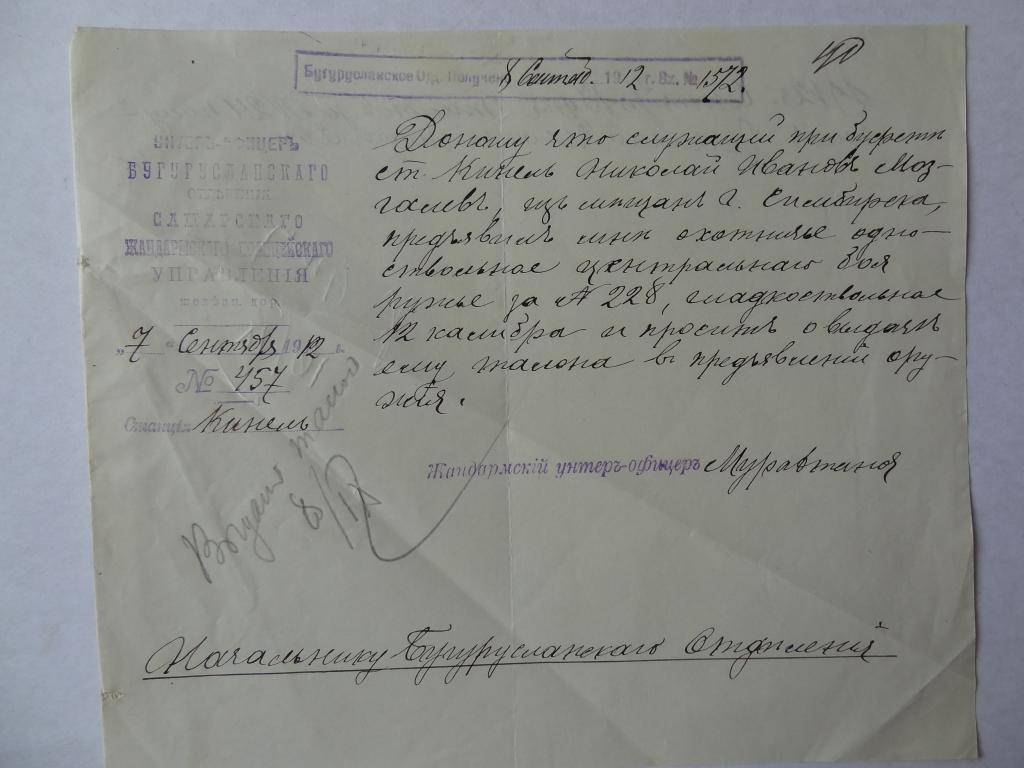 Бугурусланское Отд. Получен 8 Сентяб. 1912 г. Вх. № 1572
УНТЕРЪ-ОФИЦЕРЪ
БУГУРУСЛАНСКАГО
ОТДѢЛЕНІЯ
САМАРСКАГО
ЖАНДАРМСКАГО ПОЛИЦЕЙСКАГО
УПРАВЛЕНІЯ
желѣзн. дор.
„7“ Сентября 1912 г.
№ 457
Станція Кинель
Доношу что служащий при буфетѣ
ст. Кинель Николай Ивановъ Моз-
галевъ, изъ мѣщанъ г. Симбирска,
предъявилъ мнѣ охотничье одно-
ствольное центральнаго боя
ружье за № 228, гладкоствольное
12 калибра и проситъ о выдачѣ
ему талона въ предъявленіи ору-
жія.
Жандармскій унтеръ-офицеръ
Выданъ талон
8/IX
Начальнику Бугурусланскаго Отдѣленія